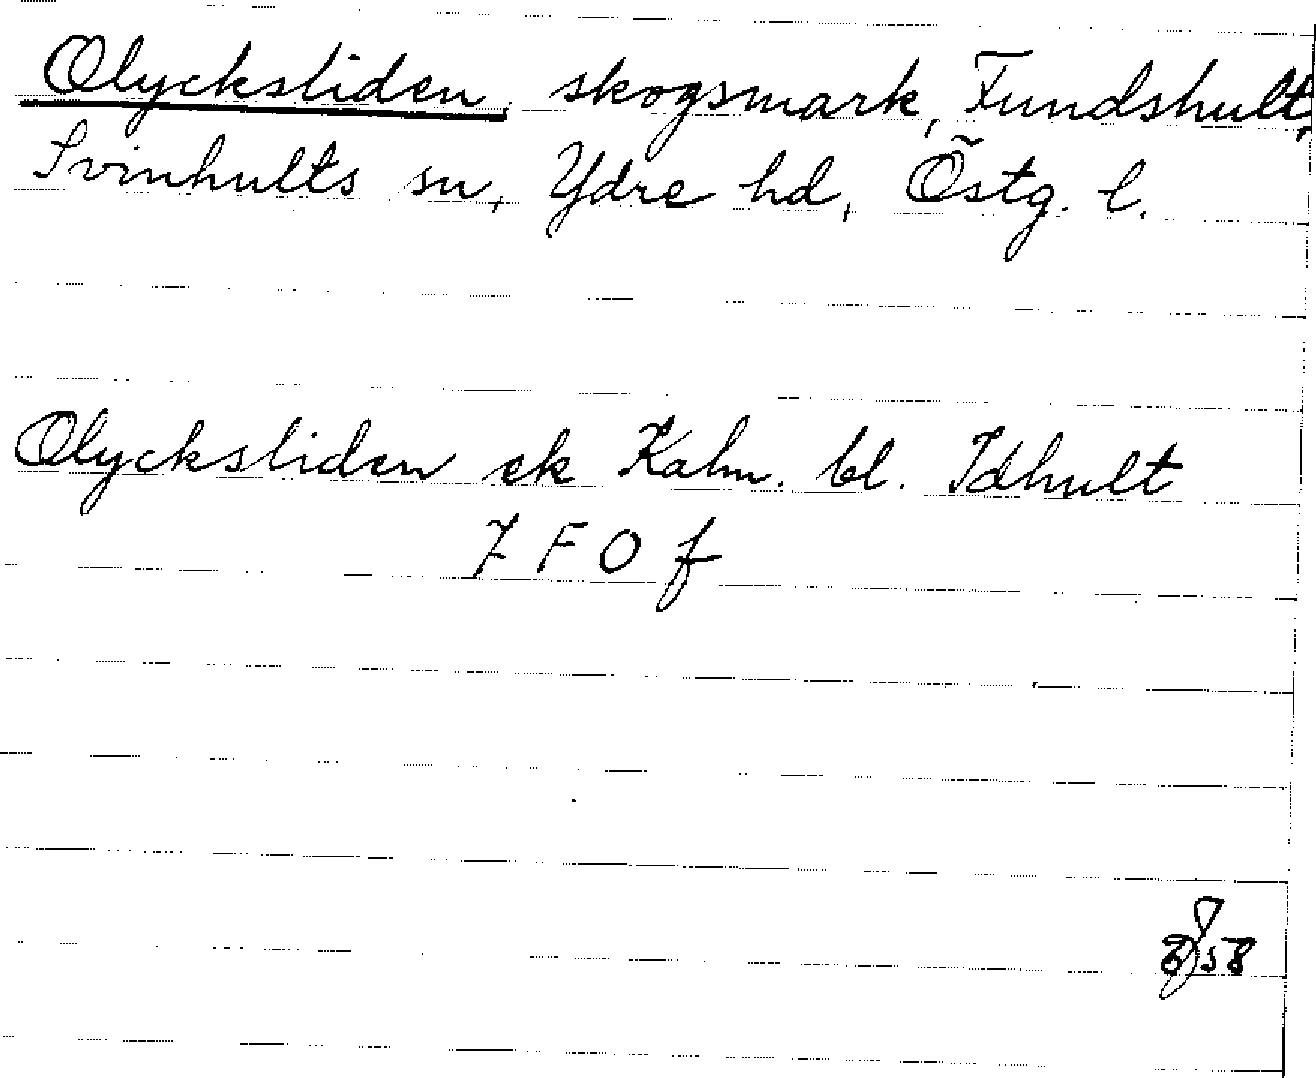 Olycksliden, skogsmark, Fundshult,
Svinhults sn, Ydre hd, Östg. l.
Olycksliden ek Kalm. bl. Idhult
7 F O f